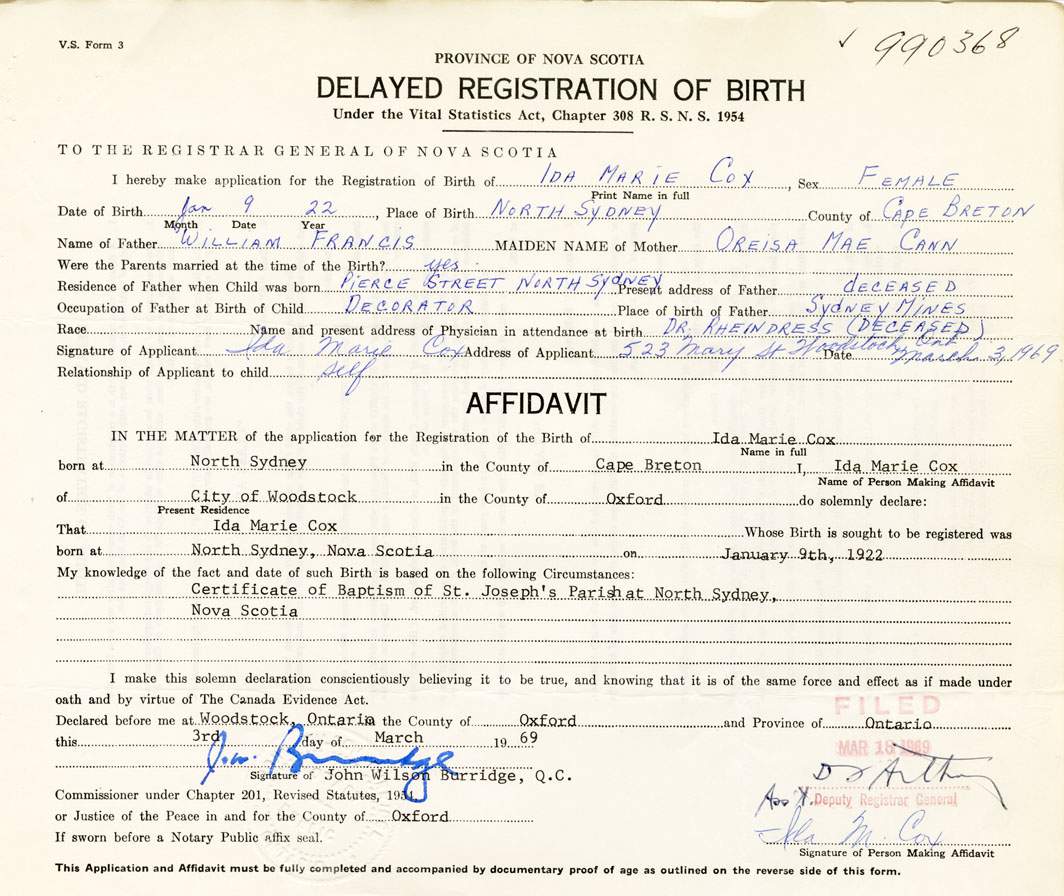 V.S. Form 3
✓ 990368
PROVINCE OF NOVA SCOTIA
DELAYED REGISTRATION OF BIRTH
Under the Vital Statistics Act, Chapter 308 R. S. N. S. 1954
TO THE REGISTRAR GENERAL OF NOVA SCOTIA
I hereby make application for the Registration of Birth of IDA MARIE COX, Sex FEMALE
Print Name in full
Date of Birth Jan 9 22, Place of Birth NORTH SYDNEY County of CAPE BRETON
Month Date Year
Name of Father WILLIAM FRANCIS MAIDEN NAME of Mother OREISA MAE CANN
Were the Parents married at the time of the Birth? yes
Residence of Father when Child was born PIERCE STREET NORTH SYDNEY Present address of Father deceased
Occupation of Father at Birth of Child DECORATOR Place of birth of Father SYDNEY MINES
Race Name and present address of Physician in attendance at birth DR. RHEINDRESS (DECEASED)
Signature of Applicant Ida Marie Cox Address of Applicant 523 Mary St Woodstock, Ont. Date March 3, 1969
Relationship of Applicant to child self
AFFIDAVIT
IN THE MATTER of the application for the Registration of the Birth of Ida Marie Cox
Name in full
born at North Sydney in the County of Cape Breton I, Ida Marie Cox
Name of Person Making Affidavit
of City of Woodstock in the County of Oxford do solemnly declare:
Present Residence
That Ida Marie Cox Whose Birth is sought to be registered was
born at North Sydney, Nova Scotia on January 9th, 1922
My knowledge of the fact and date of such Birth is based on the following Circumstances:
Certificate of Baptism of St. Joseph's Parish at North Sydney,
Nova Scotia
I make this solemn declaration conscientiously believing it to be true, and knowing that it is of the same force and effect as if made under
oath and by virtue of The Canada Evidence Act.
Declared before me at Woodstock, Ontario in the County of Oxford and Province of Ontario
FILED
this 3rd day of March 19 69
MAR 18 1969
J.W. Burridge
Signature of John Wilson Burridge, Q.C.
Commissioner under Chapter 201, Revised Statutes, 1954
Ass't. Deputy Registrar General
or Justice of the Peace in and for the County of Oxford
Ida M. Cox
If sworn before a Notary Public affix seal.
Signature of Person Making Affidavit
This Application and Affidavit must be fully completed and accompanied by documentary proof of age as outlined on the reverse side of this form.